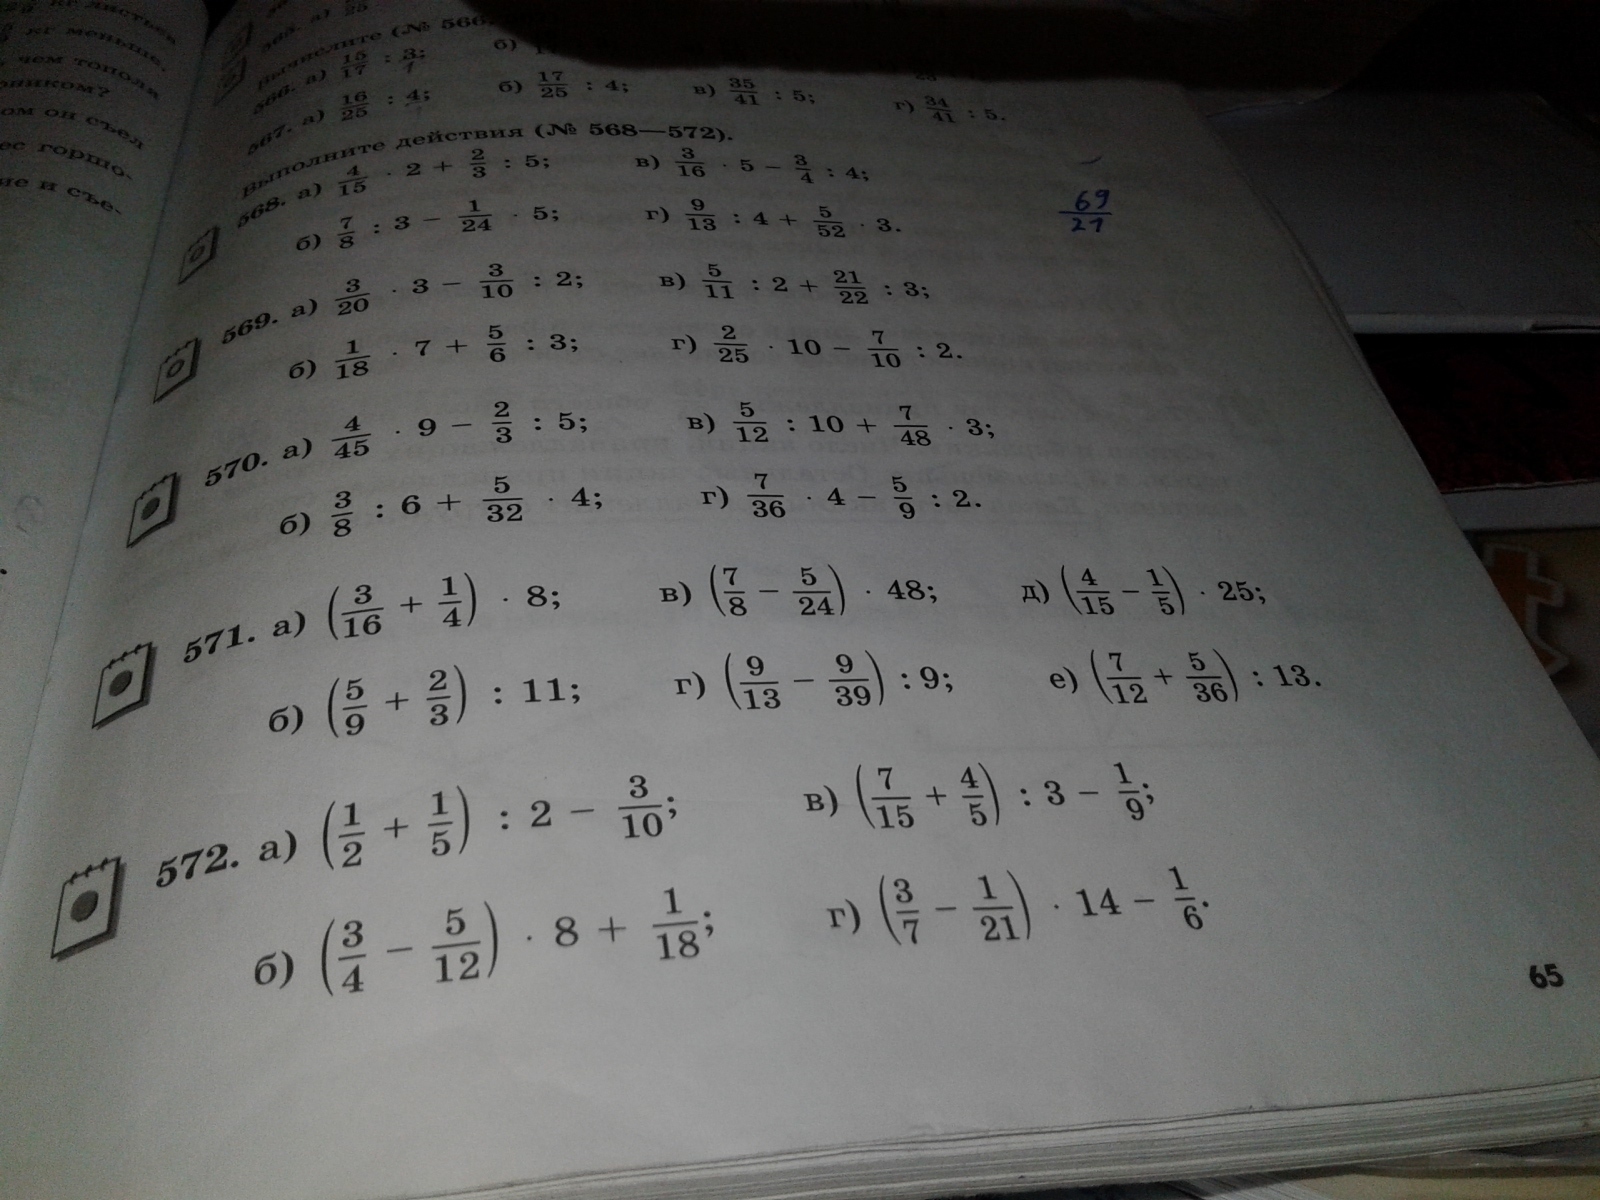 кг листьев
кг меньше,
чем тополя
ом он съел
ес горшо-
ие и съе-
565. а)
Вычислите (№ 566
566. а) 15/17 : 3; б)
567. а) 16/25 : 4; б) 17/25 : 4; в) 35/41 : 5; г) 34/41 : 5.
Выполните действия (№ 568—572).
568. а) 4/15 · 2 + 2/3 : 5; в) 3/16 · 5 − 3/4 : 4;
б) 7/8 : 3 − 1/24 · 5; г) 9/13 : 4 + 5/52 · 3.
69/21
569. а) 3/20 · 3 − 3/10 : 2; в) 5/11 : 2 + 21/22 : 3;
б) 1/18 · 7 + 5/6 : 3; г) 2/25 · 10 − 7/10 : 2.
570. а) 4/45 · 9 − 2/3 : 5; в) 5/12 : 10 + 7/48 · 3;
б) 3/8 : 6 + 5/32 · 4; г) 7/36 · 4 − 5/9 : 2.
571. а) (3/16 + 1/4) · 8; в) (7/8 − 5/24) · 48; д) (4/15 − 1/5) · 25;
б) (5/9 + 2/3) : 11; г) (9/13 − 9/39) : 9; е) (7/12 + 5/36) : 13.
572. а) (1/2 + 1/5) : 2 − 3/10; в) (7/15 + 4/5) : 3 − 1/9;
б) (3/4 − 5/12) · 8 + 1/18; г) (3/7 − 1/21) · 14 − 1/6.
65